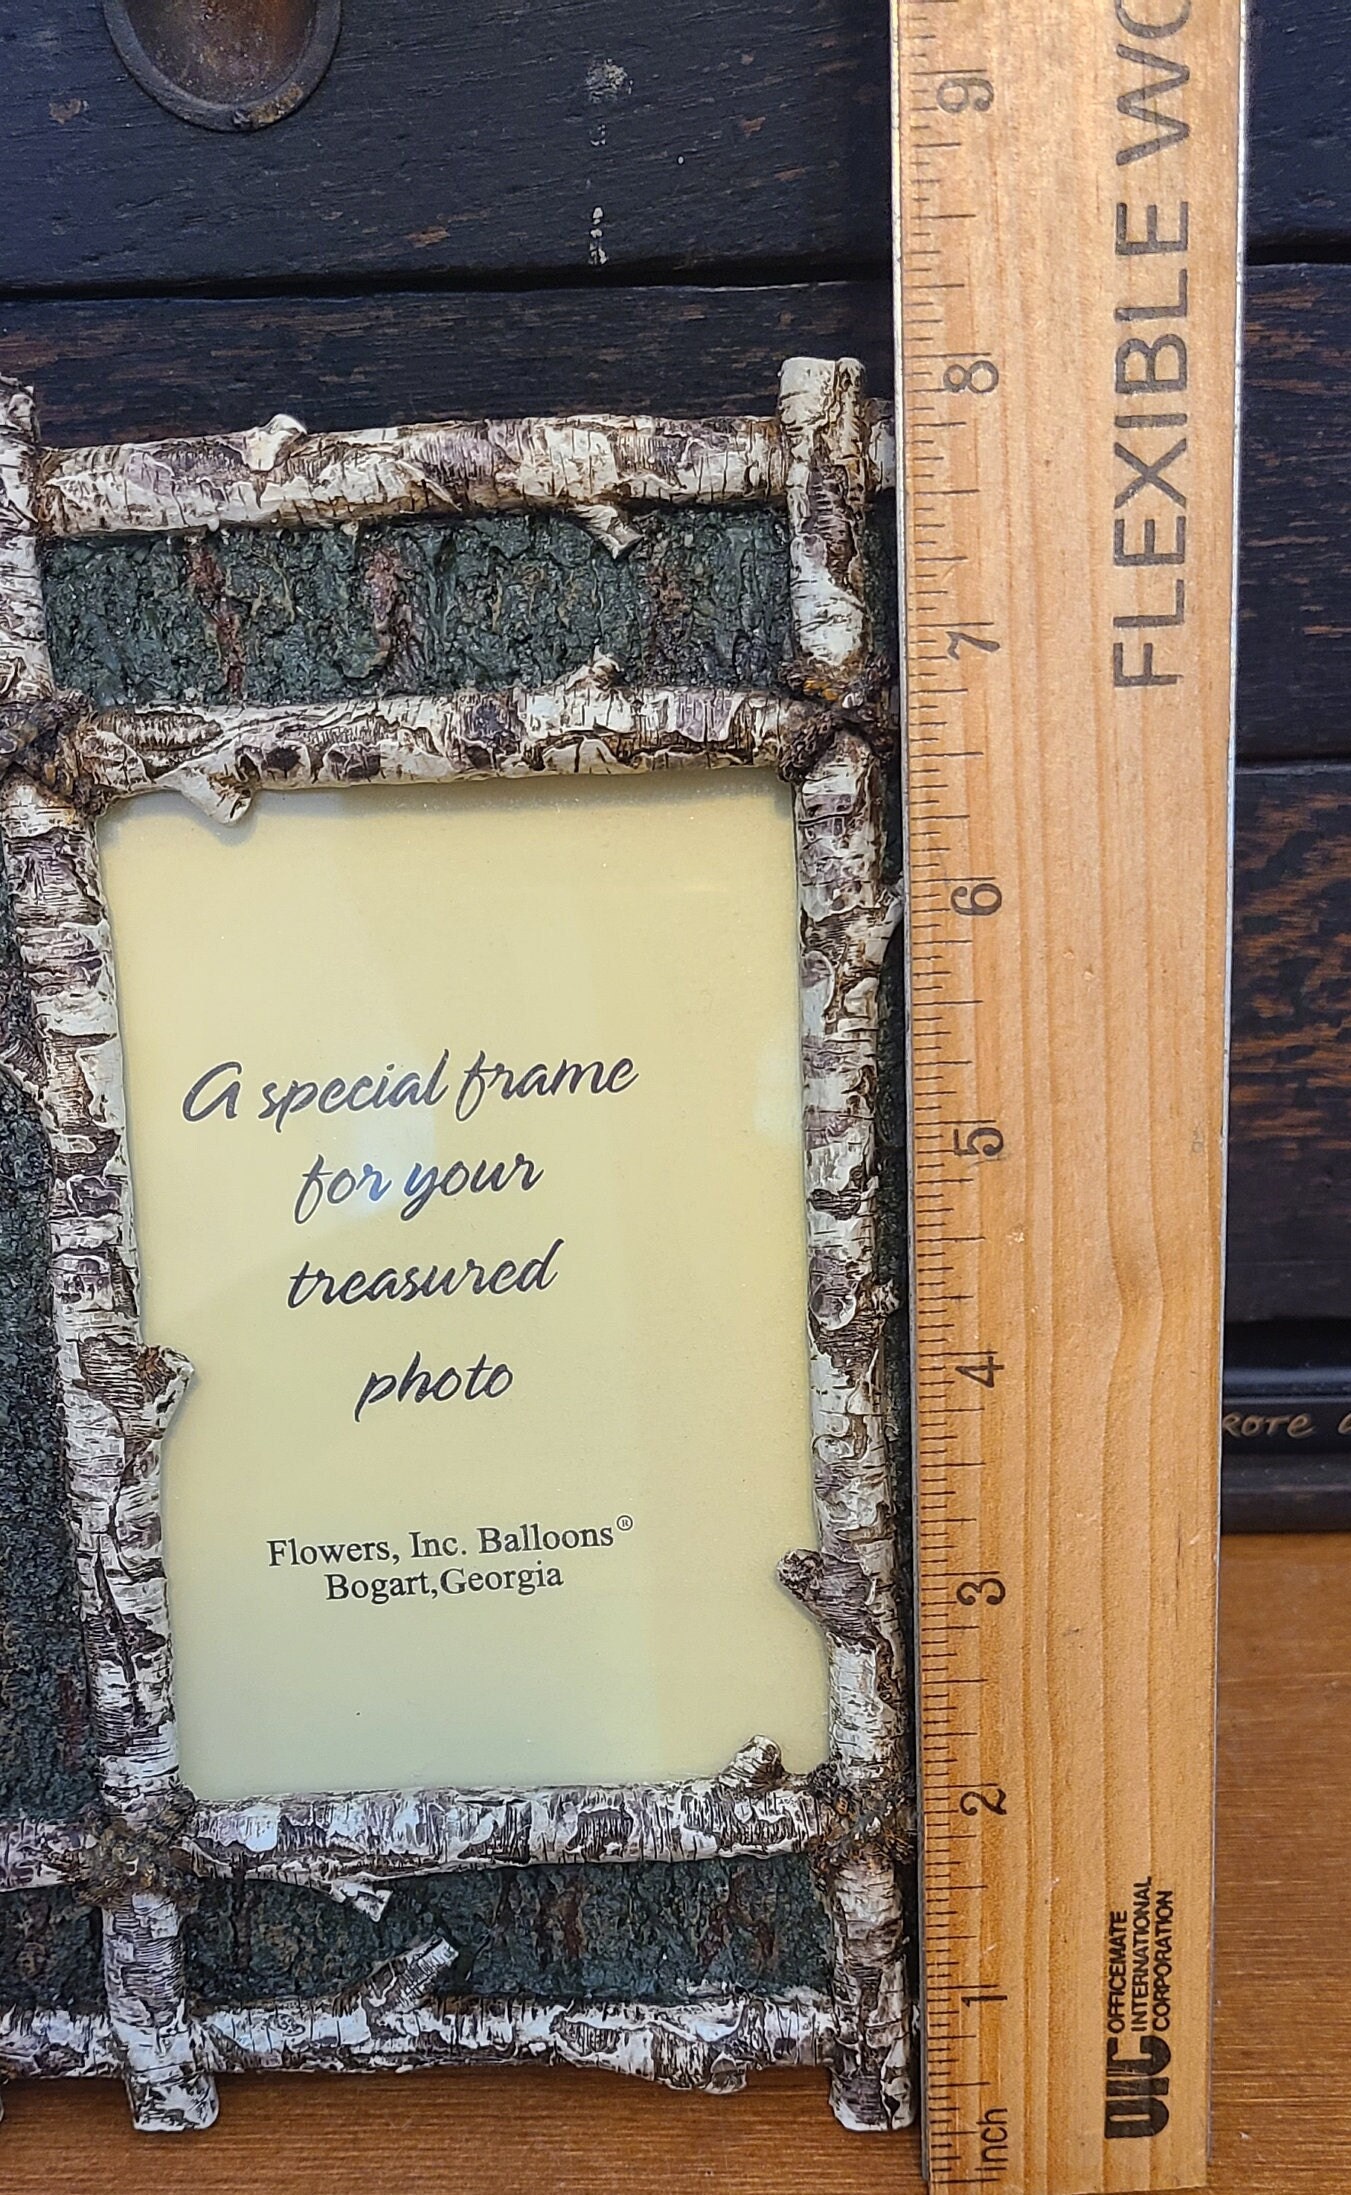 A special frame
for your
treasured
photo
Flowers, Inc. Balloons®
Bogart, Georgia
9
8
7
6
5
4
3
2
1
inch
FLEXIBLE
OIC OFFICEMATE
INTERNATIONAL
CORPORATION